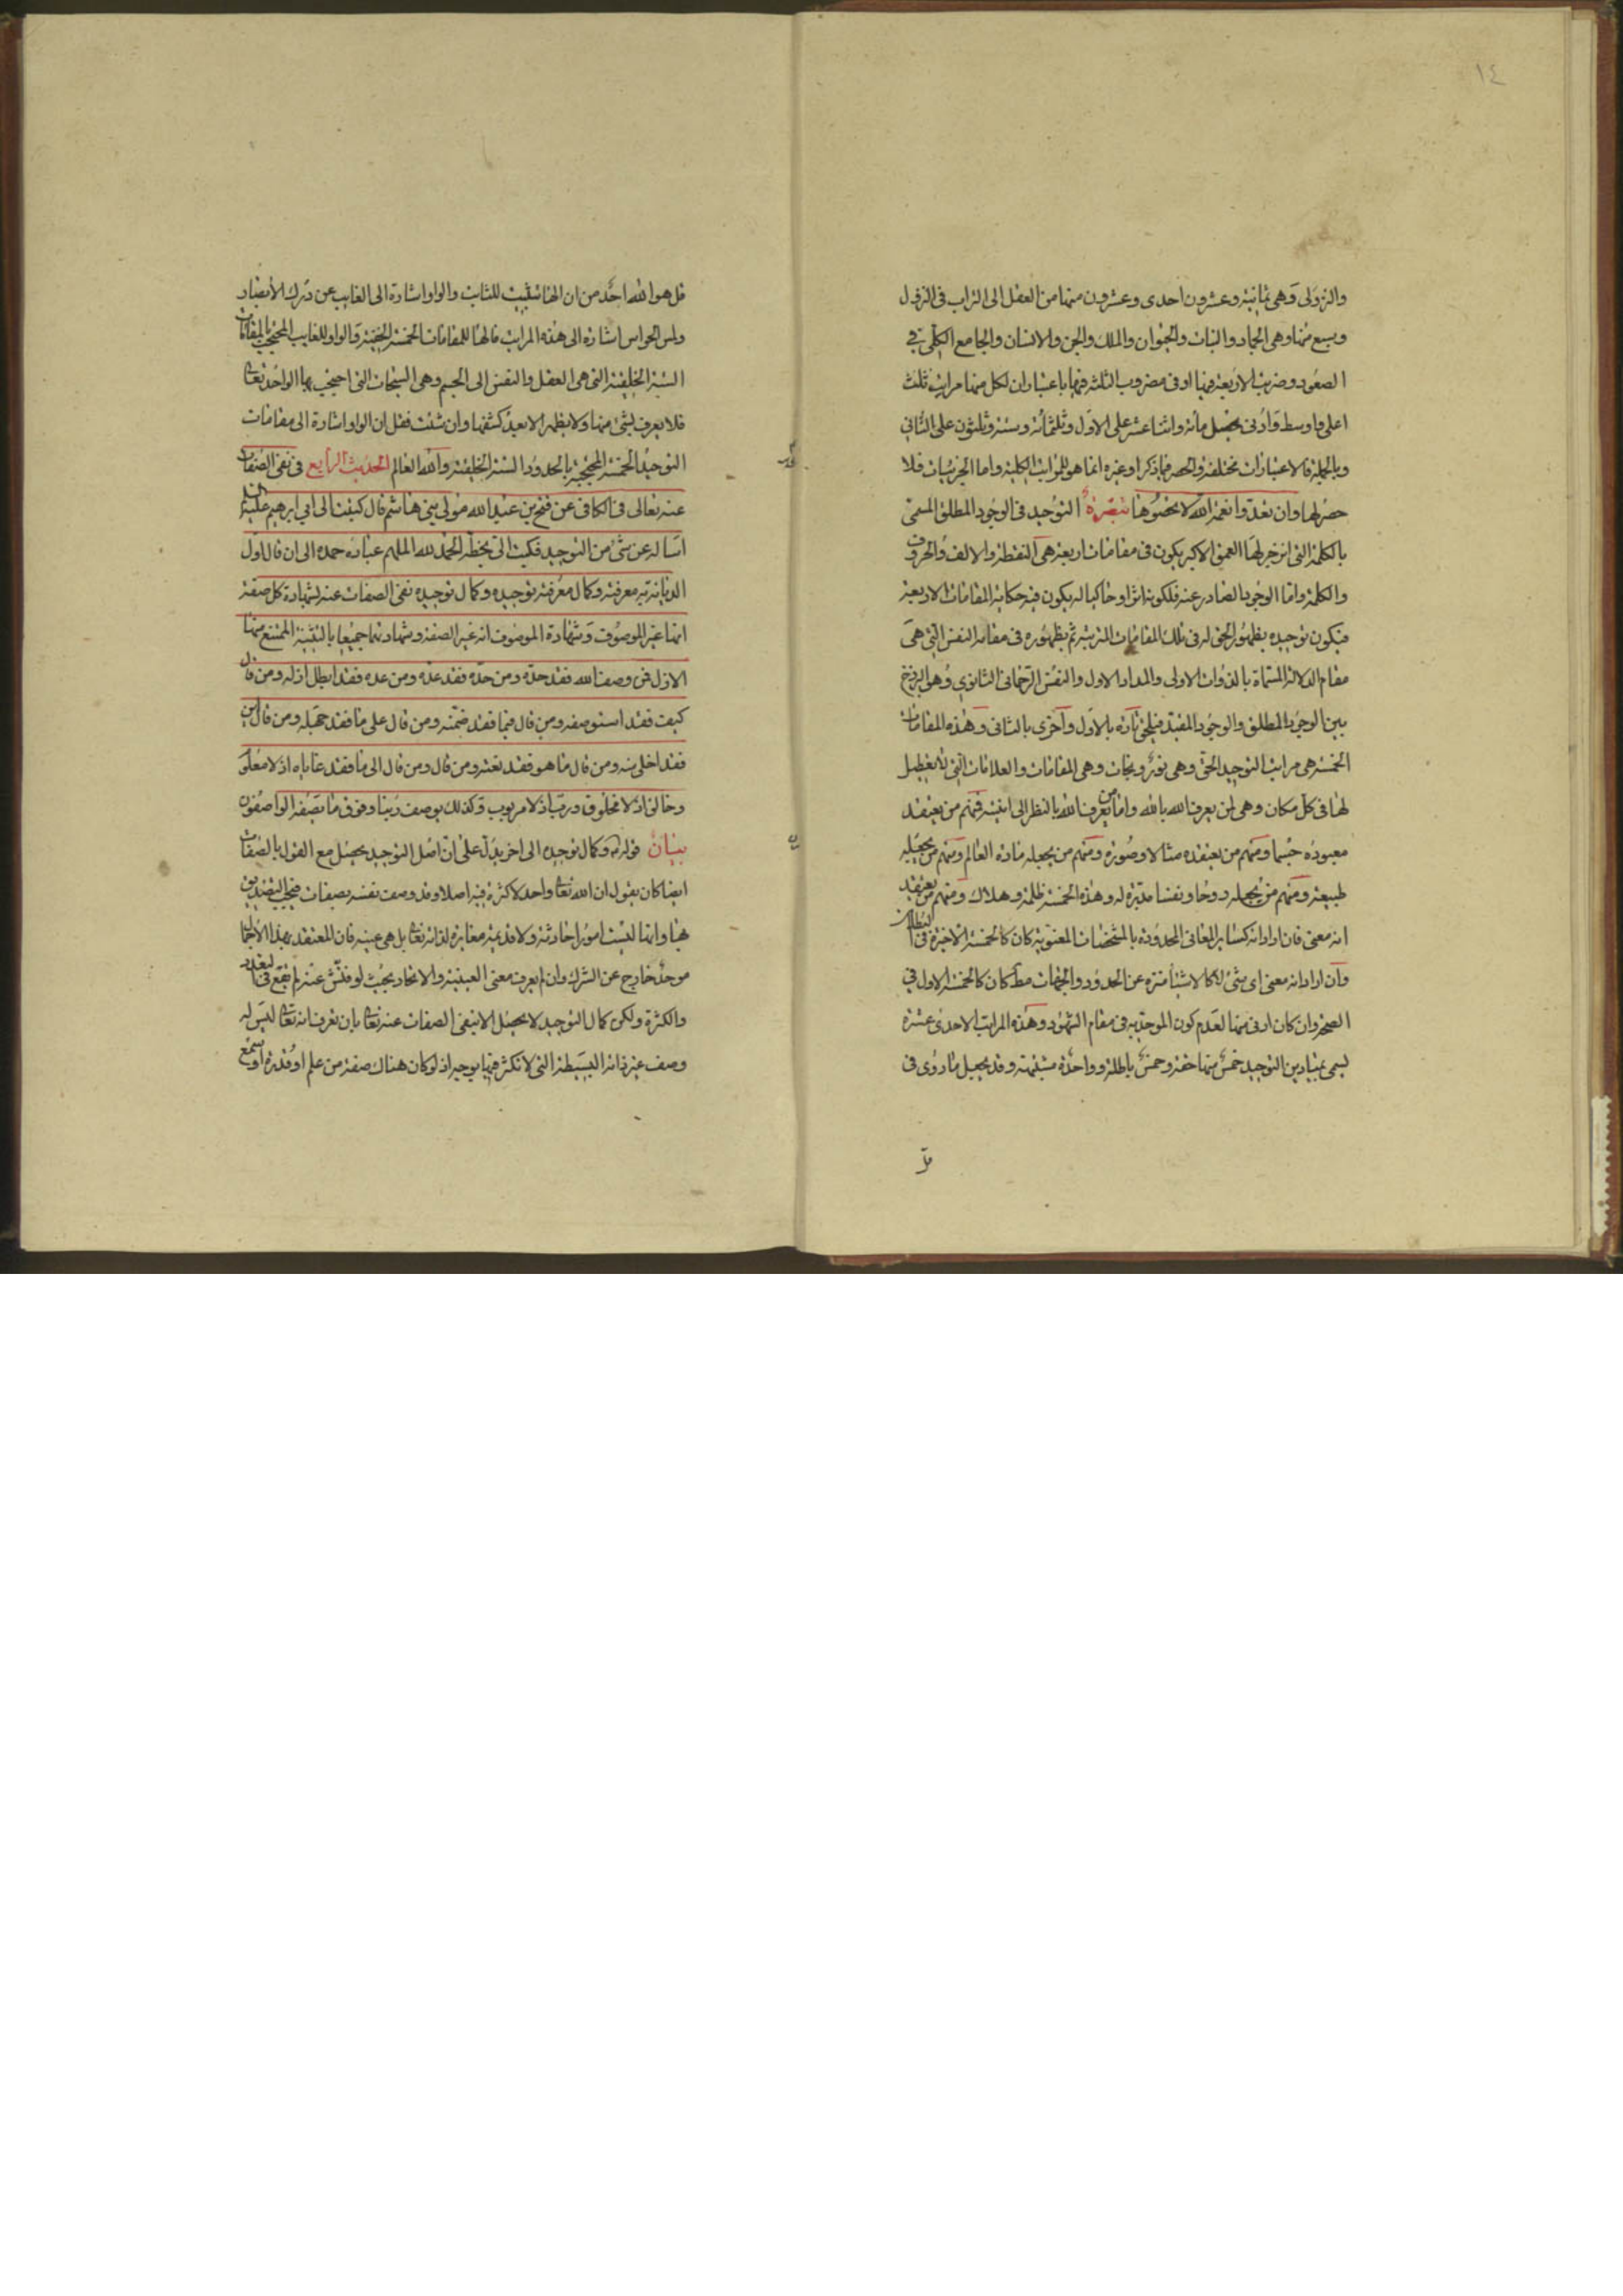 ١٤
والنزولى وهى ثمانية وعشرون احدى وعشرون منها من العقل الى التراب فى النزول
وسبع منها وهى الجماد والنبات والحيوان والملك والجن والانسان والجامع الكلى فى
الصعود وضربت الاربعة فيها او فى مضروب الثلثة فيها باعتبار ان لكل منها مراتب ثلث
اعلى واوسط وادنى يحصل مأة واثنا عشر على الاول وثلثمائة وستة وثلثون على الثانى
وبالجملة فالاعتبارات مختلفة والحصر فيما ذكر او غيره انما هو للمراتب الكلية واما الجزئيات فلا
حصر لها وان تعدوا نعمة الله لا تحصوها تبصرة التوحيد فى الوجود المطلق المسمى
بالكلمة التى انزجر لها العمق الاكبر يكون فى مقامات اربعة هى النقطة والالف والحروف
والكلمة واما الوجود الصادر عنه فلكونه اثرا وحاكيا له يكون فيه حكاية المقامات الاربعة
فيكون توحيده بظهور الحق له فى تلك المقامات المترتبة ثم بظهوره فى مقام النفس التى هى
مقام الدلالة المسماة بالدواة الاولى والمداد الاول والنفس الرحمانى الثانوى وهى البرزخ
بين الوجود المطلق والوجود المقيد فيلحق تارة بالاول واخرى بالثانى وهذه المقامات
الخمسة هى مراتب التوحيد الحق وهى نور ونجاة وهى المقامات والعلامات التى لا تعطيل
لها فى كل مكان وهى لمن يعرف الله بالله واما من يعرف الله بالنظر الى انيته فمنهم من يعتقد
معبوده جسما ومنهم من يعتقده مثالا وصورة ومنهم من يجعله مادة العالم ومنهم من يجعله
طبيعة ومنهم من يجعله روحا ونفسا مدبرة له وهذه الخمسة ظلمة وهلاك ومنهم من يعتقد
انه معنى فان اراد انه كسائر المعانى المحدودة بالمشخصات المعنوية كان كالخمسة الاخيرة فى البطلان
وان اراد انه معنى اى شئ لا كالاشياء منزه عن الحدود والجهات مط كان كالخمسة الاول فى
الصحة وان كان ادنى منها لعدم كون الموحد به فى مقام الشهود وهذه المراتب الاحدى عشرة
يسمى بميادين التوحيد خمس منها حقة وخمس باطلة وواحدة مشتبهة وقد يجعل ما روى فى
قل
قل هو الله احد من ان الها تثبيت للثابت والواو اشارة الى الغايب عن درك الابصار
ولمس الحواس اشارة الى هذه المراتب فالها للمقامات الخمسة الحقية والواو للغايب المحتجب بالمقامات
الستة الخلقية التى هى العقل والنفس الى الجسم وهى السبحات التى احتجب بها الواحد تعالى
فلا يعرف بشئ منها ولا يظهر الا بعد كشفها وان شئت فقل ان الواو اشارة الى مقامات
التوحيد الخمسة المحتجبة بالحدود الستة الخلقية والله العالم الحديث الرابع فى نفى الصفات
عنه تعالى فى الكافى عن فتح بن عبد الله مولى بنى هاشم قال كتبت الى ابى ابرهيم عليه السلام
اسأله عن شئ من التوحيد فكتب الى بخطه الحمد لله الملهم عباده حمده الى ان قال اول
الديانة به معرفته وكمال معرفته توحيده وكمال توحيده نفى الصفات عنه لشهادة كل صفة
انها غير الموصوف وشهادة الموصوف انه غير الصفة وشهادتهما جميعا بالتثنية الممتنع منها
الازل فمن وصف الله فقد حده ومن حده فقد عده ومن عده فقد ابطل ازله ومن قال
كيف فقد استوصفه ومن قال فيما فقد ضمنه ومن قال على ما فقد جهله ومن قال اين
فقد اخلى منه ومن قال ما هو فقد نعته ومن قال ومن قال الى ما فقد غاياه اذ لا معلوم
وخالق اذ لا مخلوق ورب اذ لا مربوب وكذلك يوصف ربنا وفوق ما يصفه الواصفون
بيان قوله وكمال توحيده الى اخره يدل على ان اصل التوحيد يحصل مع القول بالصفات
ايضا كان يقول ان الله تعالى واحد لا كثرة فيه اصلا وقد وصف نفسه بصفات فيجب التصديق
بها وانها ليست امورا حادثة ولا قديمة مغايرة لذاته تعالى بل هى عينه فان المعتقد بهذا الاجمال
موحد خارج عن الشرك وان لم يعرف معنى العينية والاتحاد بحيث لو فتش عنه لم يقع فى التعدد
والكثرة ولكن كمال التوحيد لا يحصل الا بنفى الصفات عنه تعالى بان تعرف انه تعالى ليس له
وصف غير ذاته البسيطة التى لا تكثر فيها بوجه اذ لو كان هناك صفة من علم او قدرة او سمع